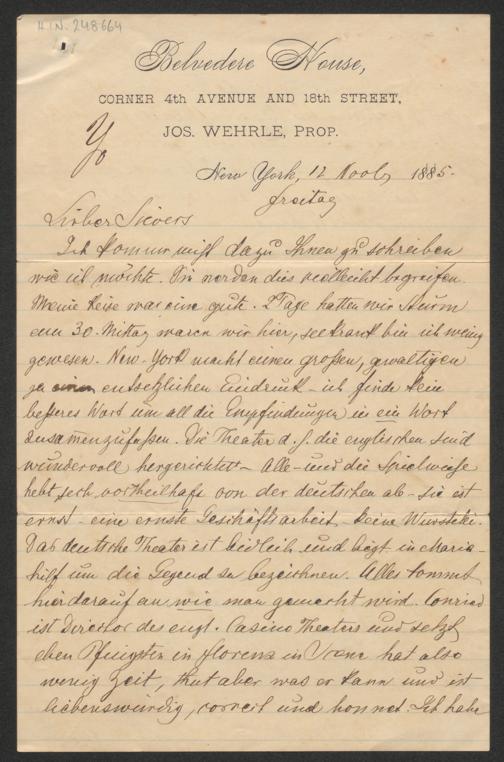 H.I.N. 248664
Belvedere House,
CORNER 4th AVENUE AND 18th STREET,
JOS. WEHRLE, PROP.
New York, 12 1885.
Freitag
Lieber Sievers
Ich komme nicht dazu Ihnen zu schreiben
wie ich möchte. Sie werden dies vielleicht begreifen.
Meine Reise war eine gute. 2 Tage hatten wir Sturm
am 30. Mittag waren wir hier, seekrank bin ich wenig
gewesen. New-York macht einen großen, gewaltigen
ja entsetzlichen Eindruck – ich finde kein
beßeres Wort um all die Empfindungen in ein Wort
zusammenzufaßen. Die Theater d. h. die englischen sind
wundervoll hergerichtet – Alle – und die Spielweise
hebt sich vortheilhaft von der deutschen ab – sie ist
ernst – eine ernste Geschäftsarbeit – keine Wurstelei.
Das deutsche Theater ist leidlich und liegt in Maria-
hilf um die Gegend zu bezeichnen. Alles kommt
hier darauf an wie man gemacht wird. Conried
ist Director des engl. Casino Theaters und setzt
eben Pfingsten in Florenz in Scene hat also
wenig Zeit, thut aber was er kann und ist
liebenswürdig, correct und honnet. Ich habe